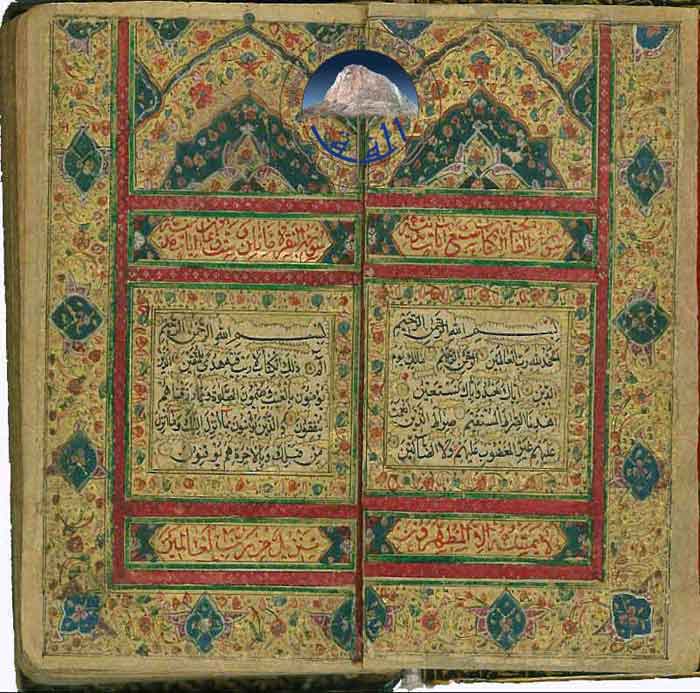 سورة الفاتحة الكتاب سبع آيات
بسم الله الرحمن الرحيم
الحمد لله رب العالمين الرحمن الرحيم مالك يوم
الدين اياك نعبد واياك نستعين
اهدنا الصراط المستقيم صراط الذين انعمت
عليهم غير المغضوب عليهم ولا الضالين
لا يمسه الا المطهرون
سورة البقرة مائتان و
بسم الله الرحمن الرحيم
الم ذلك الكتاب لا ريب فيه هدى للمتقين الذين
يؤمنون بالغيب ويقيمون الصلوة ومما رزقناهم
ينفقون والذين يؤمنون بما انزل اليك وما انزل
من قبلك وبالاخرة هم يوقنون
تنزيل من رب العالمين